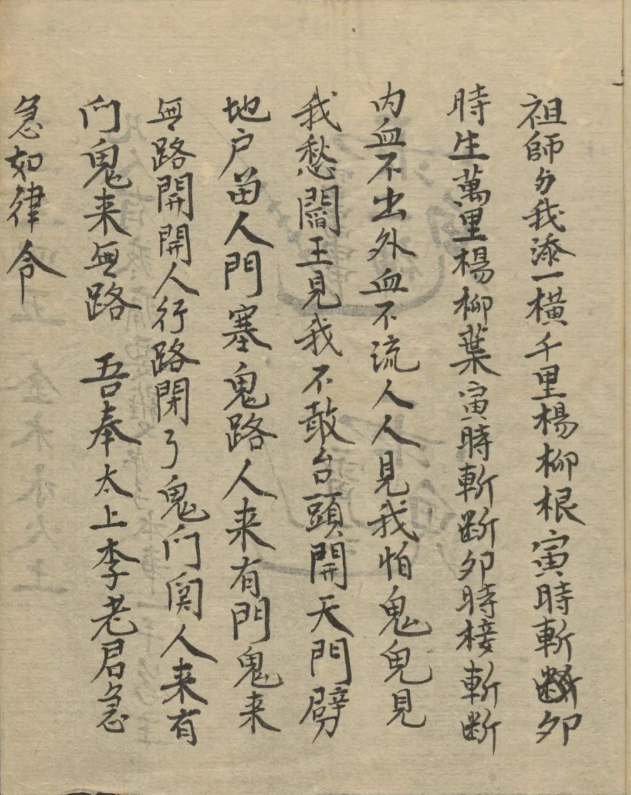 祖師与我添一横千里楊柳根寅時斬斷夘
時生萬里楊柳葉寅時斬斷夘時椄斬断
内血不出外血不流人人見我怕鬼鬼見
我愁閻王見我不敢台頭開天門劈
地户留人門塞鬼路人来有門鬼来
無路開開人行路閉了鬼门関人来有
门鬼来無路 吾奉太上李老君急
急如律令